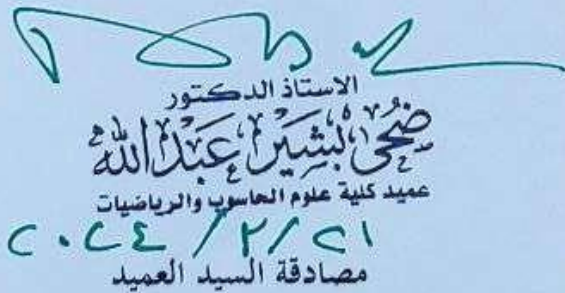 الاستاذ الدكتور
ضحى بشير عبدالله
عميد كلية علوم الحاسوب والرياضيات
٢٠٢٤ / ٢ / ٢١
مصادقة السيد العميد